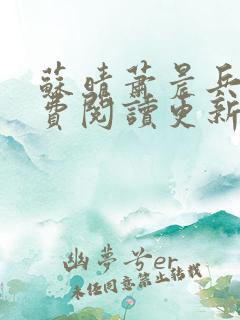 蘇晴蕭景兵
費閱讀更新
幽夢兮er
未经同意禁止转载